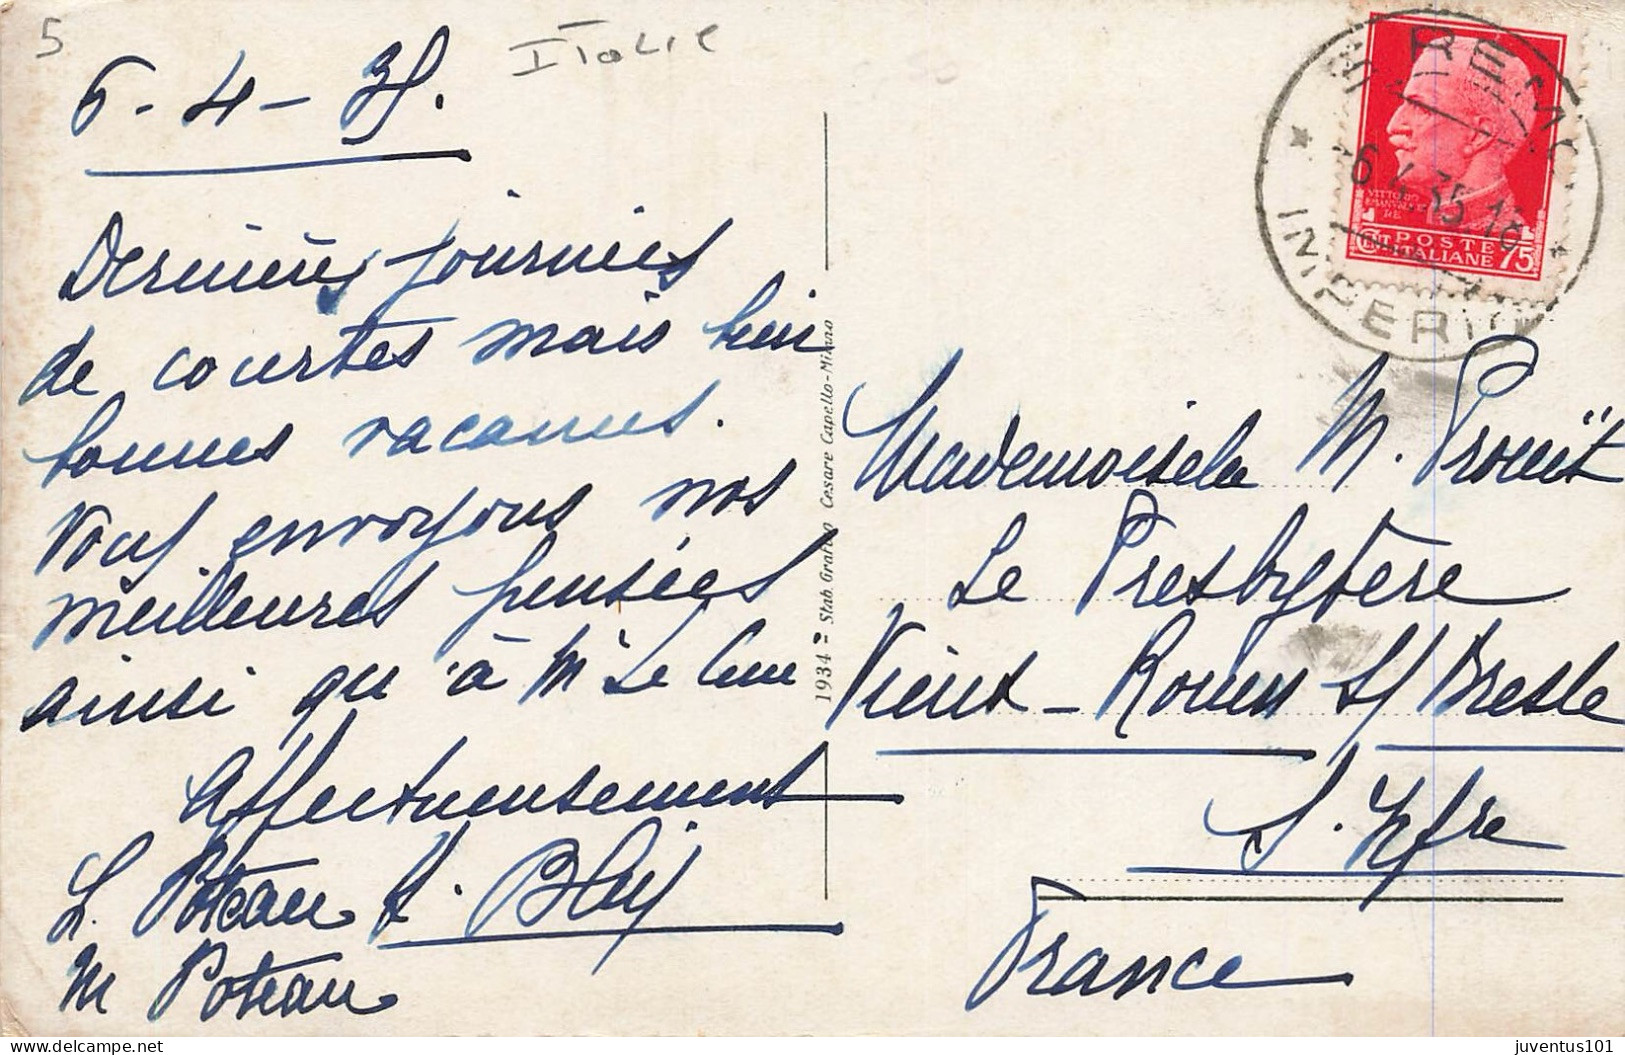 5
ITALIE
6-4-35.
Dernières journées
de courtes mais bien
bonnes vacances.
Vous envoyons nos
meilleures pensées
ainsi qu'à Mr Le Curé
Affectueusement
L. Poteau
M Poteau
1934 - Stab. Grafico Cesare Capello - Milano
S. REMO
-6.4.35.18
IMPERIA
VITTORIO
EMANUELE
RE
POSTE
ITALIANE
CENT 75
Mademoiselle M. Prouët
Le Presbytère
Vieux-Rouen s/ Bresle
S. Infre
France
juventus101